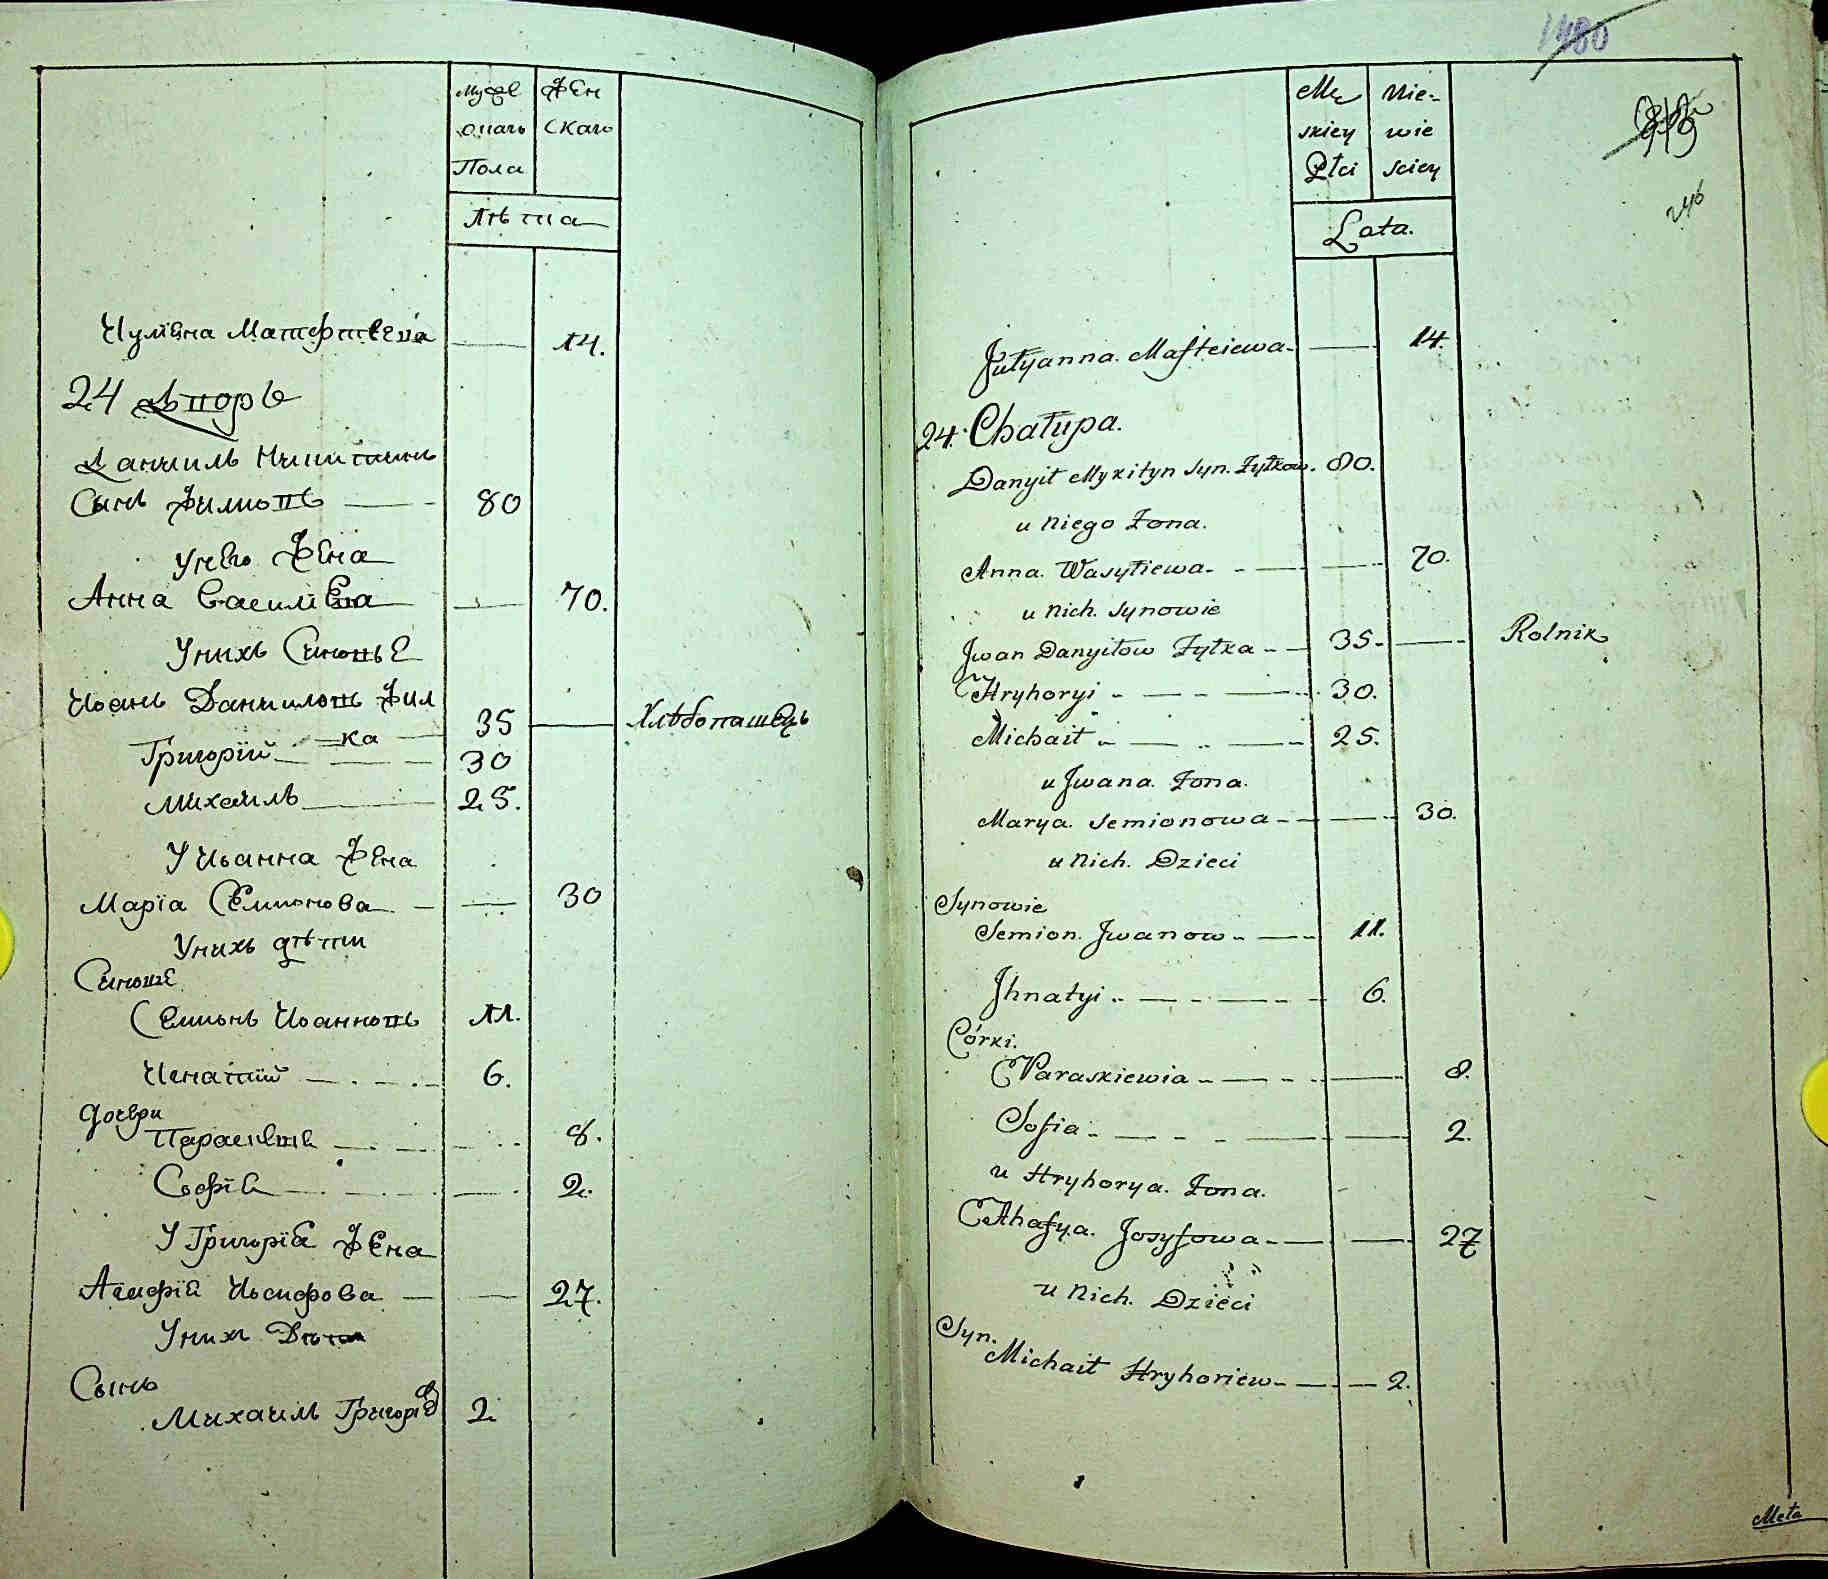 Мужес Жен
скаго скаго
Пола
Лѣта
Иулїана Матфтеева 14.
24 Дворъ
Даниилъ Никитинъ
Сынъ Филиовъ 80
У него Жена
Анна Василїева 70.
У нихъ Синовье
Иоанъ Даниловъ Фил
ка 35 Хлѣбопашецъ
Григорїй 30
Михаилъ 25.
У Иоанна Жена
Марїа Семионова 30
У нихъ дѣти
Синовье
Семионъ Иоанновъ 11.
Игнатїй 6.
дочери
Параскевїа 8.
Софїа 2.
У Григорїа Жена
Агафїа Иосифова 27.
У нихъ Дѣти
Сынъ
Михаилъ Григорїев 2
1480
246
Mę Nie-
skiey wie
Płci sciey
Lata.
Julyanna. Mafteiewa 14.
24. Chałupa.
Danyił Mykityn syn. Fyłkow. 80.
u Niego Żona.
Anna. Wasyliewa 70.
u Nich. synowie
Jwan Danyiłow Fyłka 35 Rolnik
Hryhoryi 30.
Michaił 25.
u Jwana. Żona.
Marya. Semionowa 30.
u Nich. Dzieci
Synowie
Semion. Jwanow 11.
Jhnatyi 6.
Córki.
Paraskiewia 8.
Sofia 2.
u Hryhorya. Żona.
Ahafya. Josyfowa 27
u Nich. Dzieci
Syn.
Michaił Hryhoriew 2.
Meta